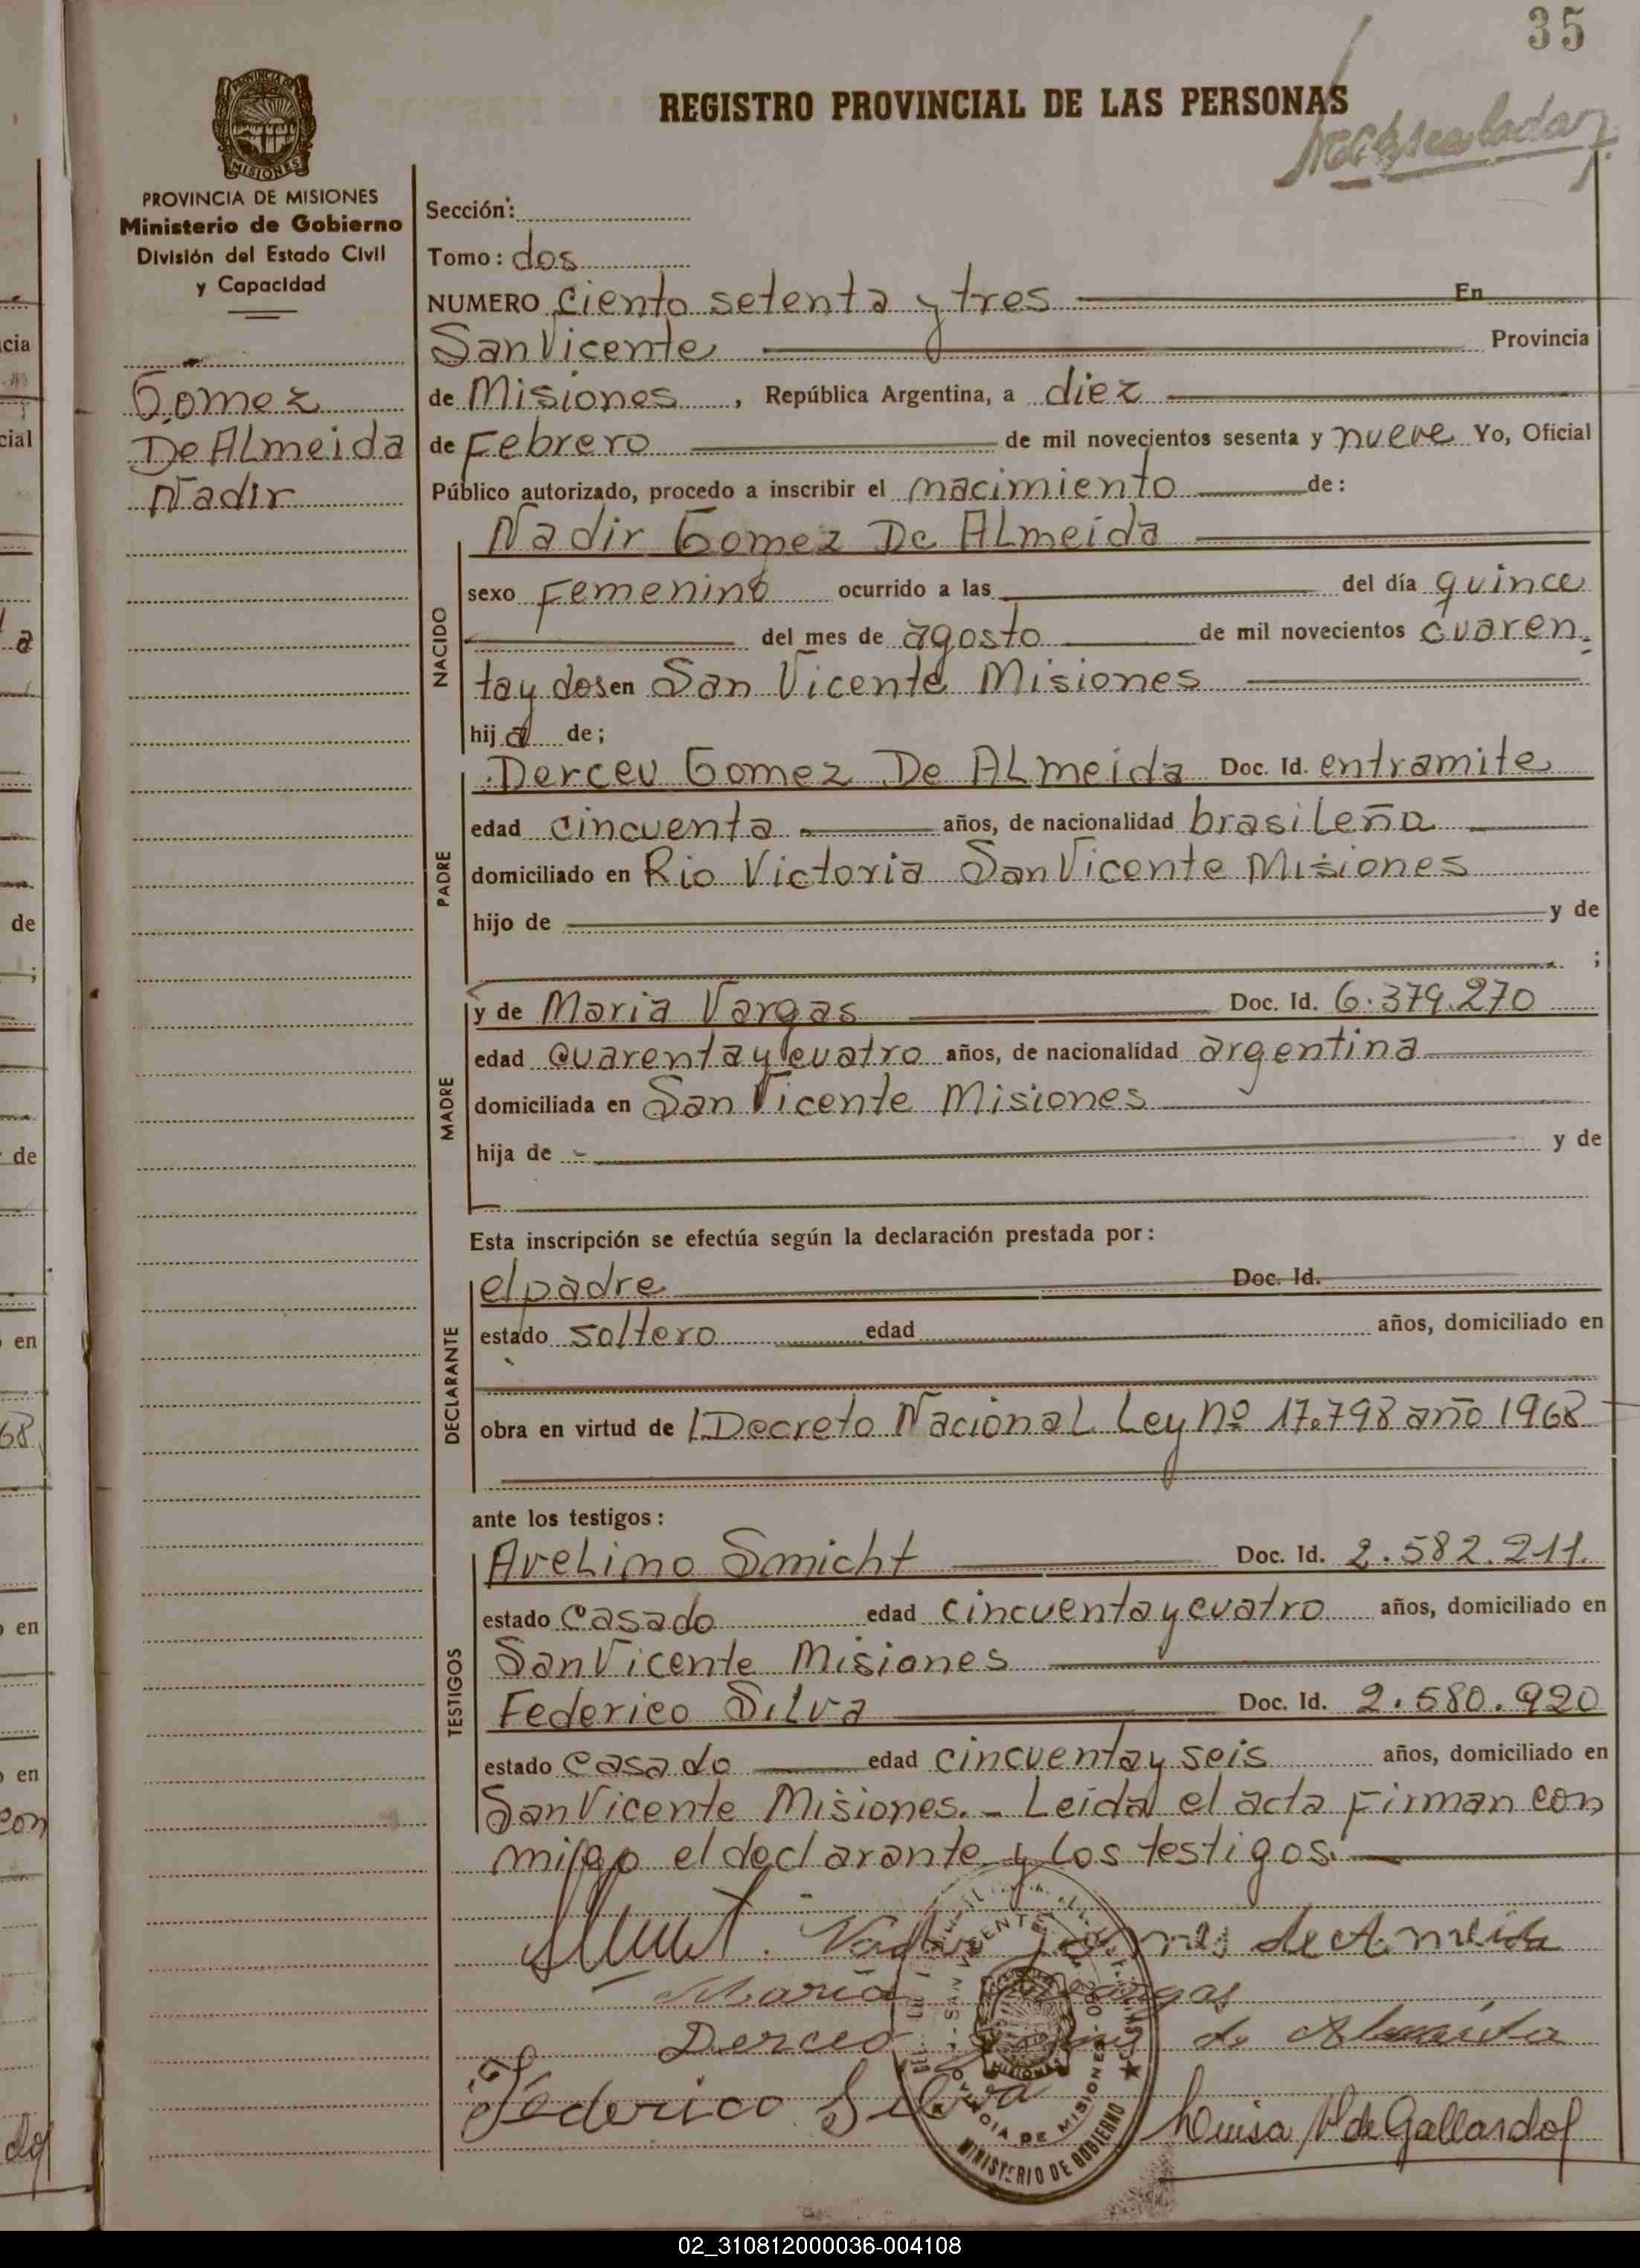 35
REGISTRO PROVINCIAL DE LAS PERSONAS
PROVINCIA DE
MISIONES
PROVINCIA DE MISIONES
Ministerio de Gobierno
División del Estado Civil
y Capacidad
Gomez
De Almeida
Nadir
Sección:
Tomo: dos
NUMERO ciento setenta y tres En
San Vicente Provincia
de Misiones, República Argentina, a diez
de Febrero de mil novecientos sesenta y nueve Yo, Oficial
Público autorizado, procedo a inscribir el nacimiento de:
Nadir Gomez De Almeida
NACIDO
sexo Femenino ocurrido a las del día quince
del mes de agosto de mil novecientos cuaren
ta y dos en San Vicente Misiones
hija de;
PADRE
Derceu Gomez De Almeida Doc. Id. entramite
edad cincuenta años, de nacionalidad brasileña
domiciliado en Rio Victoria San Vicente Misiones
hijo de y de
;
MADRE
y de Maria Vargas Doc. Id. 6.379.270
edad cuarenta y cuatro años, de nacionalidad argentina
domiciliada en San Vicente Misiones
hija de y de
Esta inscripción se efectúa según la declaración prestada por:
DECLARANTE
el padre Doc. Id.
estado soltero edad años, domiciliado en
obra en virtud de l Decreto Nacional Ley Nº 17.798 año 1968
ante los testigos:
TESTIGOS
Avelino Smicht Doc. Id. 2.582.211.
estado casado edad cincuenta y cuatro años, domiciliado en
San Vicente Misiones
Federico Silva Doc. Id. 2.580.920
estado casado edad cincuenta y seis años, domiciliado en
San Vicente Misiones. - Leida el acta Firman con
migo el declarante y los testigos.
de Almeida
Maria Vargas
Derceo de Almeida
Federico Silva
Luisa V de Gallardo
SAN VICENTE
PROVINCIA DE MISIONES
MINISTERIO DE GOBIERNO
cia
cial
de
;
de
en
68
en
en
con
02_310812000036-004108